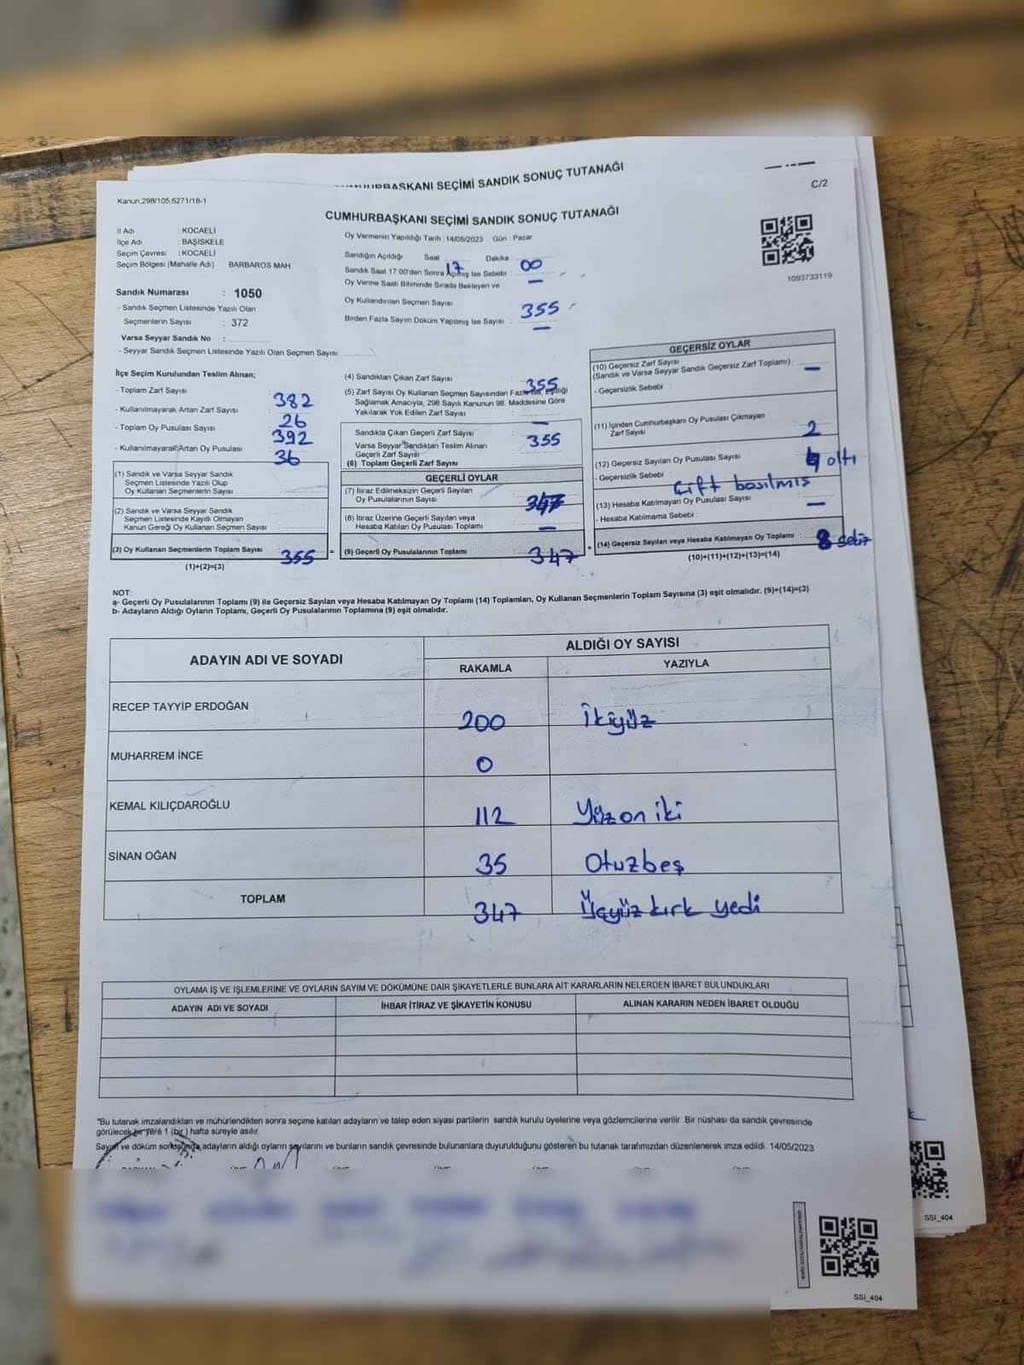 CUMHURBAŞKANI SEÇİMİ SANDIK SONUÇ TUTANAĞI
C/2
Kanun;298/105;6271/18-1
CUMHURBAŞKANI SEÇİMİ SANDIK SONUÇ TUTANAĞI
1093733119
İl Adı : KOCAELİ
İlçe Adı : BAŞİSKELE
Seçim Çevresi : KOCAELİ
Seçim Bölgesi (Mahalle Adı) BARBAROS MAH.
Sandık Numarası : 1050
- Sandık Seçmen Listesinde Yazılı Olan
Seçmenlerin Sayısı : 372
Varsa Seyyar Sandık No :
- Seyyar Sandık Seçmen Listesinde Yazılı Olan Seçmen Sayısı
Oy Vermenin Yapıldığı Tarih : 14/05/2023 Gün : Pazar
Sandığın Açıldığı Saat 17 Dakika : 00
Sandık Saat 17:00'den Sonra Açılmış İse Sebebi : —
Oy Verme Saati Bitiminde Sırada Bekleyen ve
Oy Kullandırılan Seçmen Sayısı 355
Birden Fazla Sayım Döküm Yapılmış İse Sayısı : —
İlçe Seçim Kurulundan Teslim Alınan;
- Toplam Zarf Sayısı 382
- Kullanılmayarak Artan Zarf Sayısı 26
- Toplam Oy Pusulası Sayısı 392
- Kullanılmayarak Artan Oy Pusulası 36
(1) Sandık ve Varsa Seyyar Sandık
Seçmen Listesinde Yazılı Olup
Oy Kullanan Seçmenlerin Sayısı
(2) Sandık ve Varsa Seyyar Sandık
Seçmen Listesinde Kayıtlı Olmayan
Kanun Gereği Oy Kullanan Seçmen Sayısı
(3) Oy Kullanan Seçmenlerin Toplam Sayısı 355
(1)+(2)=(3)
(4) Sandıktan Çıkan Zarf Sayısı 355
(5) Zarf Sayısı Oy Kullanan Seçmen Sayısından Fazla ise, Eşitliği
Sağlamak Amacıyla, 298 Sayılı Kanunun 98. Maddesine Göre
Yakılarak Yok Edilen Zarf Sayısı —
Sandıkta Çıkan Geçerli Zarf Sayısı 355
Varsa Seyyar Sandıktan Teslim Alınan
Geçerli Zarf Sayısı
(6) Toplam Geçerli Zarf Sayısı
GEÇERLİ OYLAR
(7) İtiraz Edilmeksizin Geçerli Sayılan
Oy Pusulalarının Sayısı 347
(8) İtiraz Üzerine Geçerli Sayılan veya
Hesaba Katılan Oy Pusulası Toplamı —
(9) Geçerli Oy Pusulalarının Toplamı 347
GEÇERSİZ OYLAR
(10) Geçersiz Zarf Sayısı
(Sandık ve Varsa Seyyar Sandık Geçersiz Zarf Toplamı) : —
- Geçersizlik Sebebi :
(11) İçinden Cumhurbaşkanı Oy Pusulası Çıkmayan
Zarf Sayısı 2
(12) Geçersiz Sayılan Oy Pusulası Sayısı altı
- Geçersizlik Sebebi : Çift basılmış
(13) Hesaba Katılmayan Oy Pusulası Sayısı —
- Hesaba Katılmama Sebebi :
(14) Geçersiz Sayılan veya Hesaba Katılmayan Oy Toplamı : 8 sekiz
(10)+(11)+(12)+(13)=(14)
NOT:
a- Geçerli Oy Pusulalarının Toplamı (9) ile Geçersiz Sayılan veya Hesaba Katılmayan Oy Toplamı (14) Toplamları, Oy Kullanan Seçmenlerin Toplam Sayısına (3) eşit olmalıdır. (9)+(14)=(3)
b- Adayların Aldığı Oyların Toplamı, Geçerli Oy Pusulalarının Toplamına (9) eşit olmalıdır.
ADAYIN ADI VE SOYADI
ALDIĞI OY SAYISI
RAKAMLA YAZIYLA
RECEP TAYYİP ERDOĞAN 200 İkiyüz
MUHARREM İNCE 0
KEMAL KILIÇDAROĞLU 112 Yüz on iki
SİNAN OĞAN 35 Otuzbeş
TOPLAM 347 Üçyüz kırk yedi
OYLAMA İŞ VE İŞLEMLERİNE VE OYLARIN SAYIM VE DÖKÜMÜNE DAİR ŞİKAYETLERLE BUNLARA AİT KARARLARIN NELERDEN İBARET BULUNDUKLARI
ADAYIN ADI VE SOYADI İHBAR İTİRAZ VE ŞİKAYETİN KONUSU ALINAN KARARIN NEDEN İBARET OLDUĞU
"Bu tutanak imzalandıktan ve mühürlendikten sonra seçime katılan adayların ve talep eden siyasi partilerin sandık kurulu üyelerine veya gözlemcilerine verilir. Bir nüshası da sandık çevresinde
görülecek bir yere 1 (bir) hafta süreyle asılır.
Sayım ve döküm sonucunda adayların aldığı oyların sayılarını ve bunların sandık çevresinde bulunanlara duyurulduğunu gösteren bu tutanak tarafımızdan düzenlenerek imza edildi. 14/05/2023
SSİ_404
SSİ_404